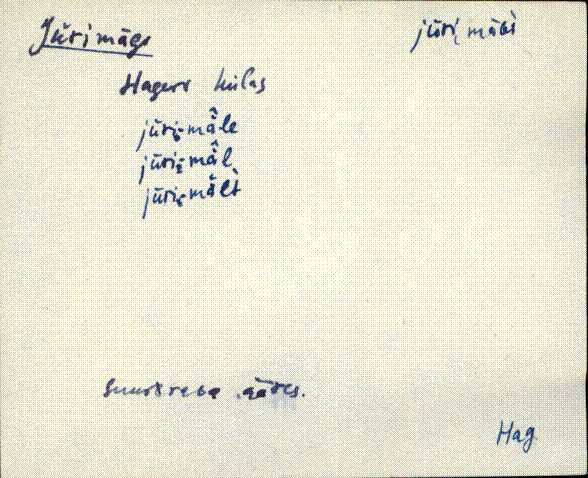 Jürimägi
jüri mäǵi
Hageri külas
jüri-mäle
jüri-mäl
jüri-mält
Suurkraba ääres.
Hag.